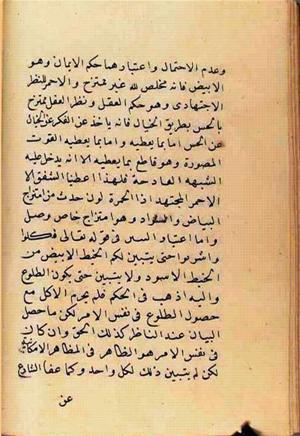 وعدم الاحتمال واعتبارهما حكم الايمان وهو
الابيض فانه مخلص لله غير ممتزج والاحمر للنظر
الاجتهادى وهو حكم العقل ونظر العقل ممتزج
بالحس بطريق الخيال فانه ياخذ عن الفكر عن الخيال
عن الحس اما بما يعطيه واما بما يعطيه القوت
المصورة وهو قاطع بما يعطيه الا انه يدخل عليه
الشبهه القادحة فلهذا اعطينا الشفق الا
الاحمر المجتهد اذ الحمرة لون حدث من امتزاج
البياض والسواد وهو امتزاج خاص وصل
واما اعتبار السر فى قوله تعالى فكلوا
واشربوا حتى يتبين لكم الخيط الابيض من
الخيط الاسود ولا يتبين حتى يكون الطلوع
واليه اذهب فى الحكم فلم يحرم الاكل مع
حصول الطلوع فى نفس الامر لكن ما حصل
البيان عند الناظر كذلك الحق وان كان
فى نفس الامر هو الظاهر فى المظاهر الامكانية
لكن لم يتبين ذلك لكل واحد وكما عفا الشارع
عن